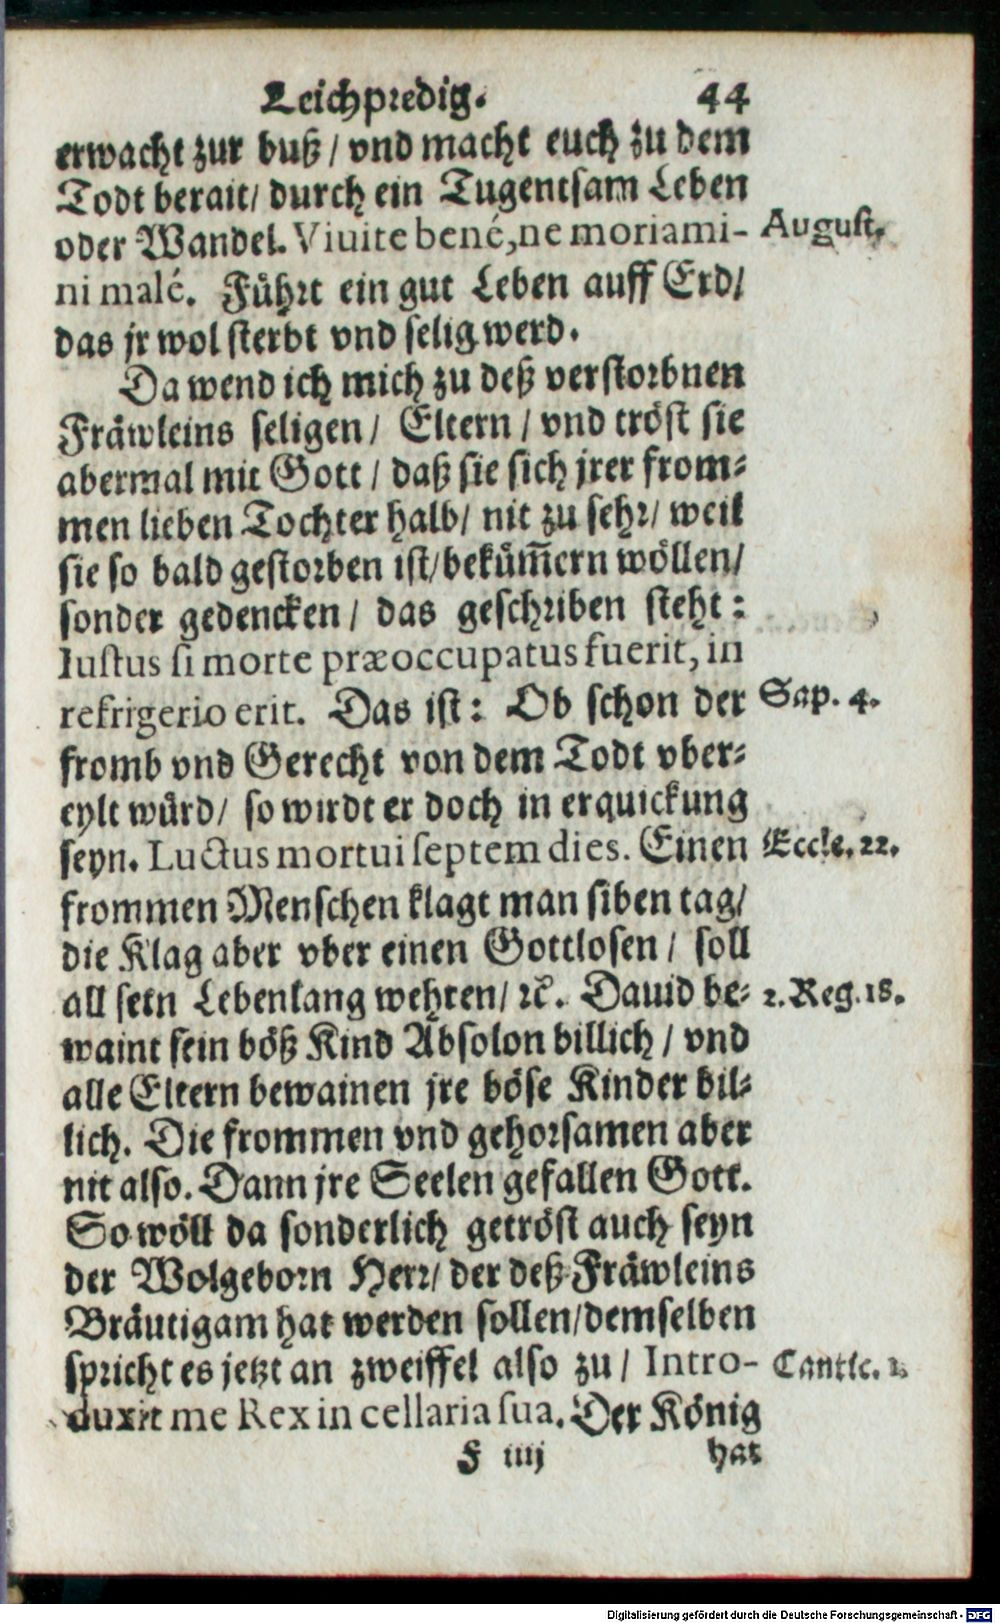 Leichpredig. 44
erwacht zur buß / vnd macht euch zu dem
Todt berait / durch ein Tugentsam Leben
oder Wandel. Viuite bené, ne moriami- August.
ni malé. Führt ein gut Leben auff Erd /
das jr wol sterbt vnd selig werd.
Da wend ich mich zu deß verstorbnen
Fräwleins seligen / Eltern / vnd tröst sie
abermal mit Gott / daß sie sich jrer from-
men lieben Tochter halb / nit zu sehr / weil
sie so bald gestorben ist / bekům̃ern wöllen /
sonder gedencken / das geschriben steht:
Iustus si morte præoccupatus fuerit, in
refrigerio erit. Das ist: Ob schon der Sap. 4.
fromb vnd Gerecht von dem Todt vber-
eylt würd / so wirdt er doch in erquickung
seyn. Luctus mortui septem dies. Einen Eccle. 22.
frommen Menschen klagt man siben tag /
die Klag aber vber einen Gottlosen / soll
all sein Lebenlang wehren / ꝛc. Dauid be- 2. Reg. 18.
waint sein böß Kind Absolon billich / vnd
alle Eltern bewainen jre böse Kinder bil-
lich. Die frommen vnd gehorsamen aber
nit also. Dann jre Seelen gefallen Gott.
So wöll da sonderlich getröst auch seyn
der Wolgeborn Herr / der deß Fräwleins
Bräutigam hat werden sollen / demselben
spricht es jetzt an zweiffel also zu / Intro- Cantic. 1.
duxit me Rex in cellaria sua. Der König
F iiij hat
Digitalisierung gefördert durch die Deutsche Forschungsgemeinschaft - DFG